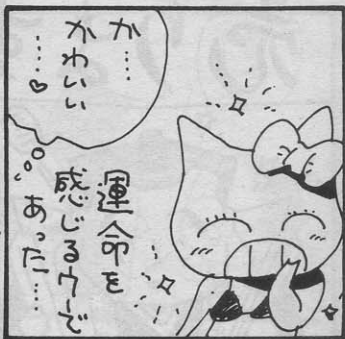 か……
かわいい
……♡
運命を
感じるウーで
あった……